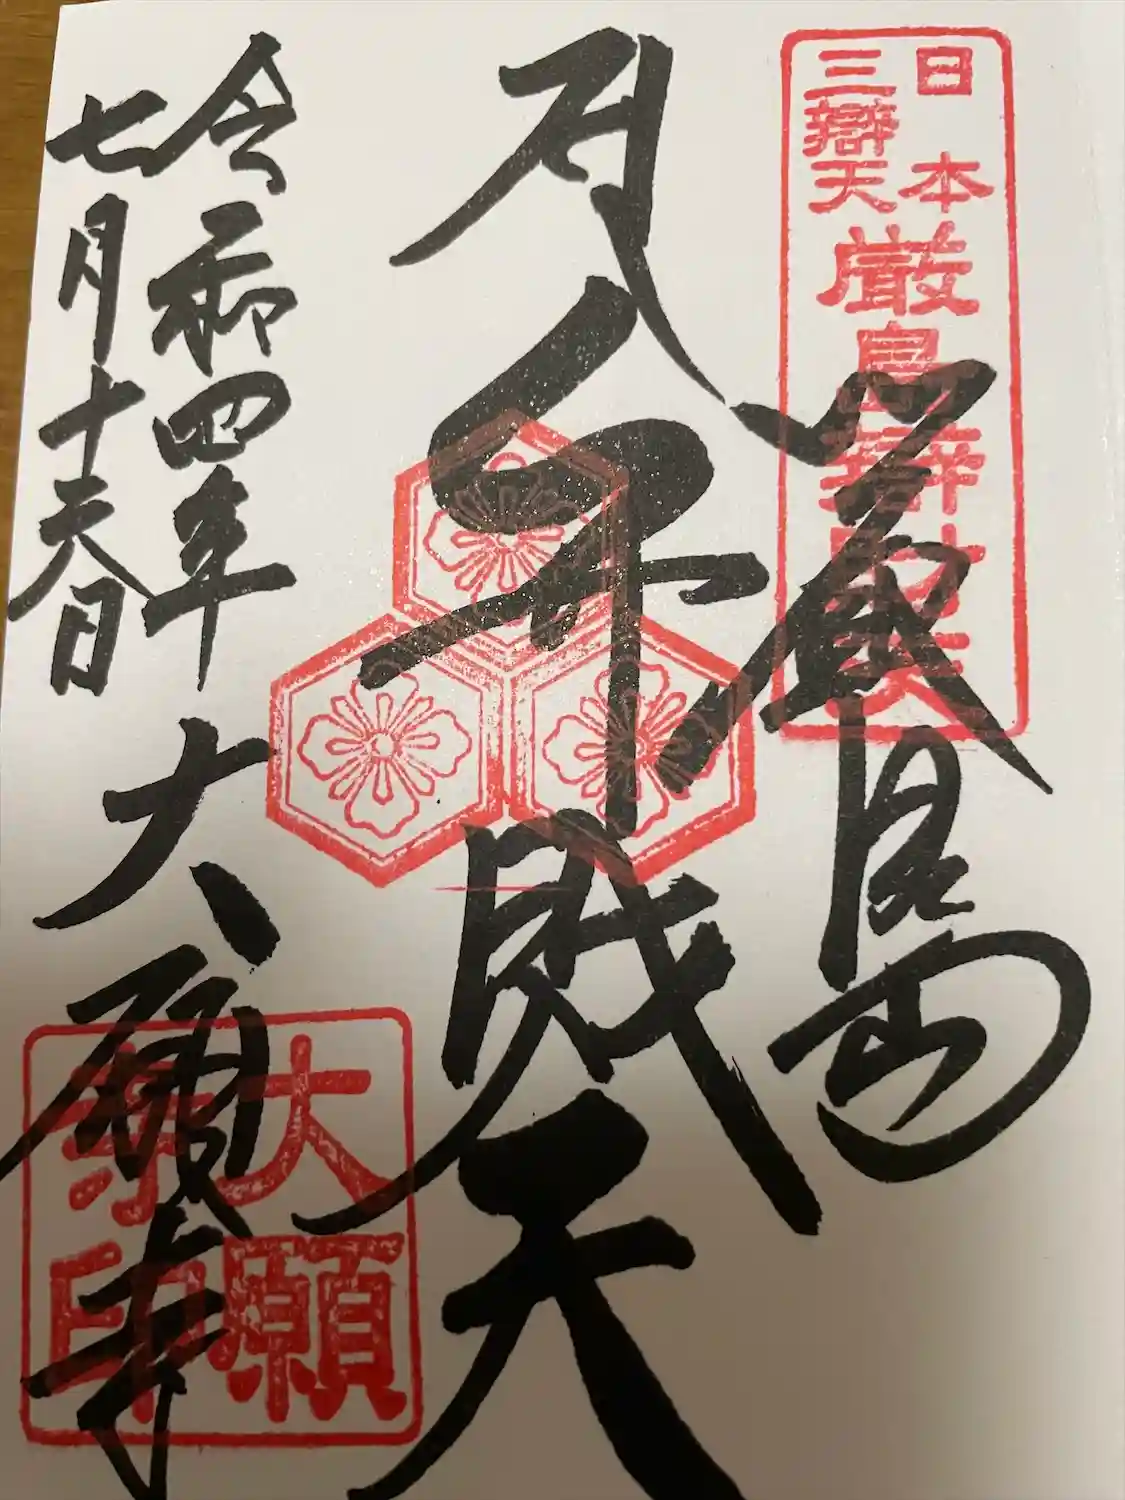 日本
三辯天
厳島辯財天
厳島
大弁財天
令和四年
七月十六日
大願寺
大願
寺印